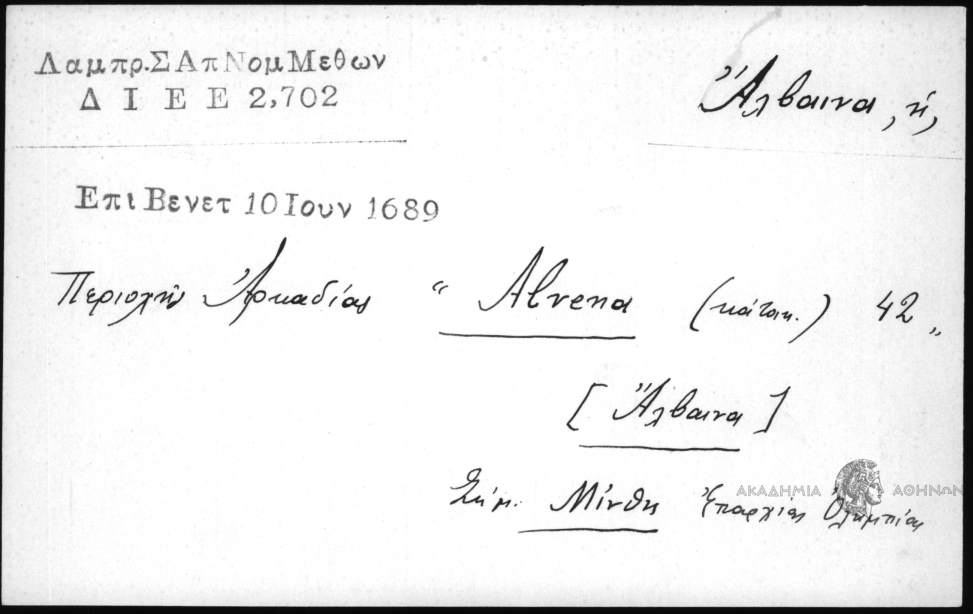 Λαμπρ.ΣΑπΝομΜεθων
Δ Ι Ε Ε 2,702
Ἄλβαινα, ἡ,
ΕπιΒενετ 10Ιουν 1689
Περιοχὴ Ἀρκαδίας “ Alvena (κάτοικ.) 42 „
[Ἄλβαινα]
Σήμ. Μίνθη Ἐπαρχίας Ὀλυμπίας
ΑΚΑΔΗΜΙΑ ΑΘΗΝΩΝ